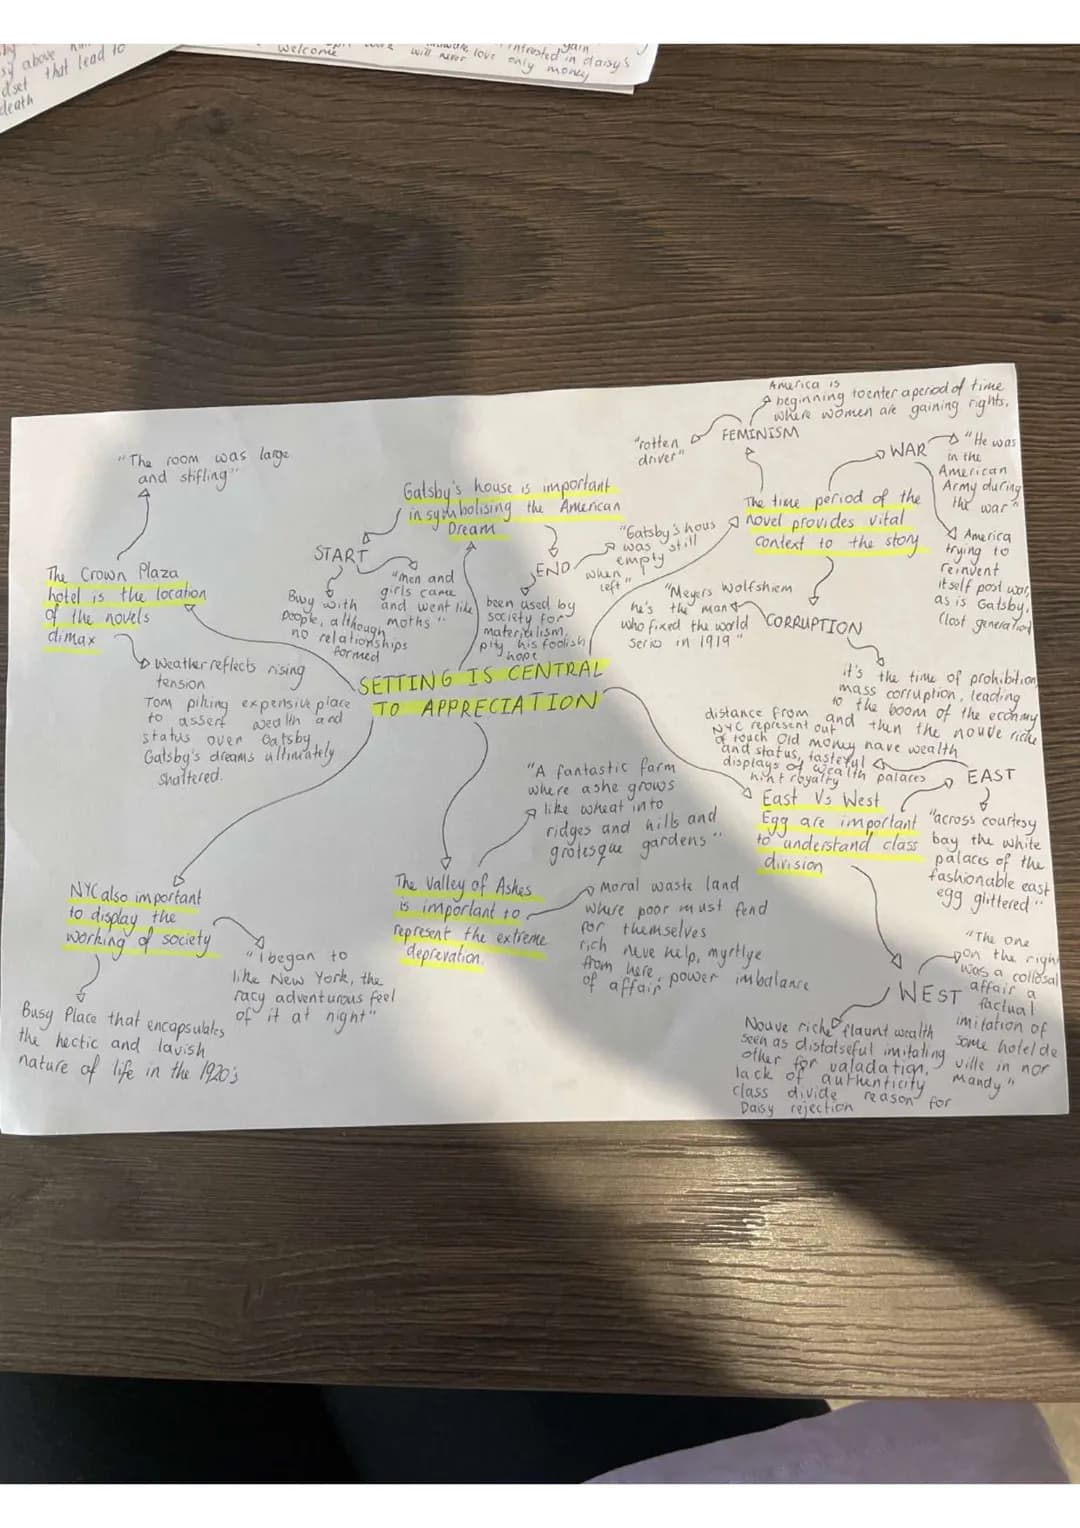 sy above
dset that lead to
death
welcome
will never love only money
intrested in daisy's
"The room was large
and stifling"
The Crown Plaza
hotel is the location
of the novels
climax
Weather reflects rising
tension
Tom piking expensive place
to assert wealth and
status over Gatsby
Gatsby's dreams ultimiately
shattered.
Gatsby's house is important
in symbolising the American
Dream
START
Busy with
people, although
no relationships
formed
"men and
girls came
and went like
moths"
END
"Gatsby's hous
was still
empty
when I
left"
been used by
society for
materialism,
pity his foolish
hope
SETTING IS CENTRAL
TO APPRECIATION
The time period of the
novel provides vital
context to the story
FEMINISM
"rotten
driver"
America is
beginning to enter a period of time
where women are gaining rights.
WAR
"He was
in the
American
Army during
the war"
America
trying to
reinvent
itself post war,
as is Gatsby.
(lost generation)
CORRUPTION
"Meyers Wolfshiem
he's the man
who fixed the world
serio in 1919"
it's the time of prohibition,
mass corruption, leading
to the boom of the econmy
and then the nouve riche
East Vs West
Egg are important
to understand class
division
EAST
distance from
NYC represent out
of touch Old money have wealth
and status, tasteful
displays of wealth palaces
hint royalty
"across courtesy
bay the white
palaces of the
fashionable east
egg glittered"
WEST
"The one
on the right
was a collosal
affair a
factual
imitation of
some hotel de
ville in nor
mandy"
Nouve riche flaunt wealth
seen as distatseful imitating
other for valadation,
lack of authenticity
class divide reason for
Daisy rejection
The Valley of Ashes
is important to
represent the extreme
deprevation.
"A fantastic farm
where ashe grows
like wheat into
ridges and hills and
grotesque gardens"
Moral waste land
where poor must fend
for themselves
rich neve help, myrtlye
from here, power imbalance
of affair
NYC also important
to display the
working of society
"I began to
like New York, the
racy adventurous feel
of it at night"
Busy Place that encapsulates
the hectic and lavish
nature of life in the 1920's